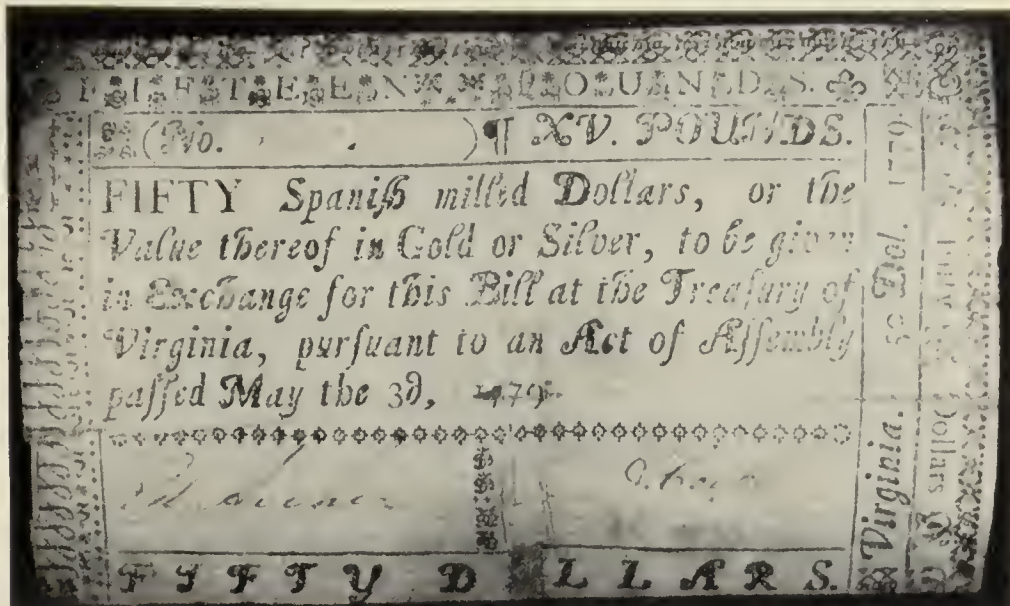 FIFTEEN POUNDS.
(No. ) ¶ XV. POUNDS.
FIFTY Spaniſh milled Dollars, or the
Value thereof in Gold or Silver, to be given
in Exchange for this Bill at the Treaſury of
Virginia, purſuant to an Act of Aſſembly
paſſed May the 3d, 1779.
FIFTY DOLLARS.
Virginia. 50 Dol. 1779.
Dollars